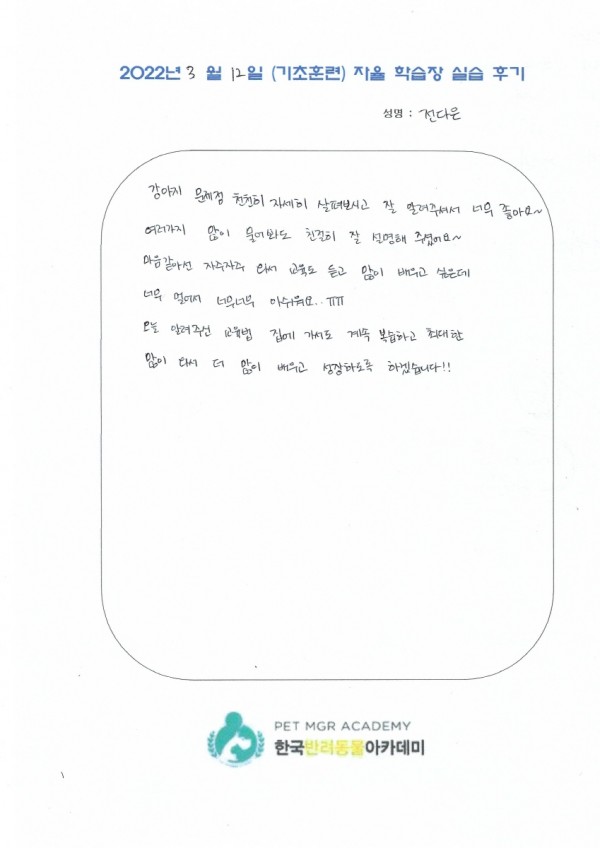 2022년 3 월 12일 (기초훈련) 자율 학습장 실습 후기
성명 : 전다은
강아지 문제점 천천히 자세히 살펴보시고 잘 알려주셔서 너무 좋아요~
여러가지 많이 물어봐도 친절히 잘 설명해 주셨어요~
마음같아선 자주자주 와서 교육도 듣고 많이 배우고 싶은데
너무 멀어서 너무너무 아쉬워요..ㅠㅠ
오늘 알려주신 교육법 집에 가서도 계속 복습하고 최대한
많이 와서 더 많이 배우고 성장하도록 하겠습니다!!
PET MGR ACADEMY
한국반려동물아카데미